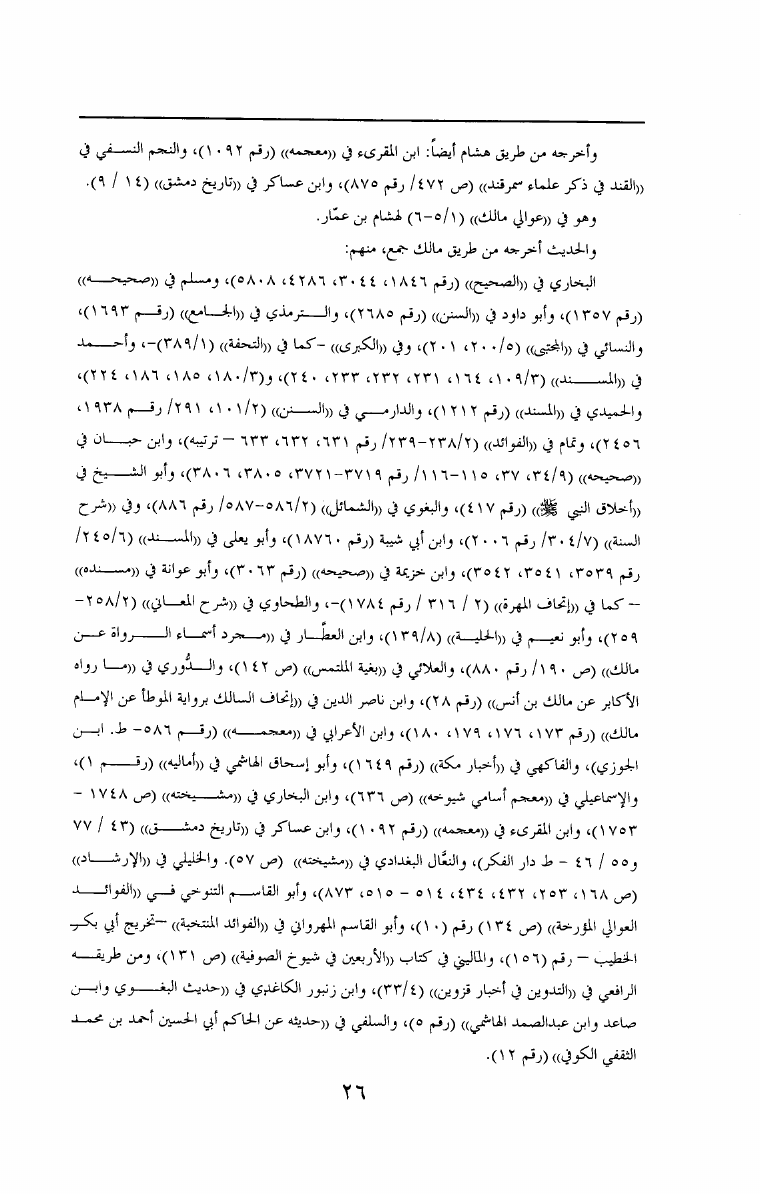 وأخرجه من طريق هشام أيضاً: ابن المقرىء في ((معجمه)) (رقم ١٠٩٢)، والنجم النسفي في
((القند في ذكر علماء سمرقند)) (ص ٤٧٢/ رقم ٨٧٥)، وابن عساكر في ((تاريخ دمشق)) (١٤ / ٩).
وهو في ((عوالي مالك)) (٥/١-٦) لهشام بن عمّار.
والحديث أخرجه من طريق مالك جمع، منهم:
البخاري في ((الصحيح)) (رقم ١٨٤٦، ٣٠٤٤، ٤٢٨٦، ٥٨٠٨)، ومسلم في ((صحيحه))
(رقم ١٣٥٧)، وأبو داود في ((السنن)) (رقم ٢٦٨٥)، والترمذي في ((الجامع)) (رقم ١٦٩٣)،
والنسائي في ((المجتبى)) (٢٠٠/٥، ٢٠١)، وفي ((الكبرى)) -كما في ((التحفة)) (٣٨٩/١)-، وأحمد
في ((المسند)) (١٠٩/٣، ١٦٤، ٢٣١، ٢٣٢، ٢٣٣، ٢٤٠)، و(١٨٠/٣، ١٨٥، ١٨٦، ٢٢٤)،
والحميدي في ((المسند)) (رقم ١٢١٢)، والدارمي في ((السنن)) (١٠١/٢، ٢٩١/ رقم ١٩٣٨،
٢٤٥٦)، وتمام في ((الفوائد)) (٢٣٨/٢-٢٣٩/ رقم ٦٣١، ٦٣٢، ٦٣٣ - ترتيبه)، وابن حبان في
((صحيحه)) (٣٤/٩، ٣٧، ١١٥-١١٦/ رقم ٣٧١٩-٣٧٢١، ٣٨٠٥، ٣٨٠٦)، وأبو الشيخ في
((أخلاق النبي ﷺ)) (رقم ٤١٧)، والبغوي في ((الشمائل)) (٥٨٦/٢-٥٨٧/ رقم ٨٨٦)، وفي ((شرح
السنة)) (٣٠٤/٧/ رقم ٢٠٠٦)، وابن أبي شيبة (رقم ١٨٧٦٠)، وأبو يعلى في ((المسند)) (٢٤٥/٦/
رقم ٣٥٣٩، ٣٥٤١، ٣٥٤٢)، وابن خزيمة في ((صحيحه)) (رقم ٣٠٦٣)، وأبو عوانة في ((مسنده))
- كما في ((إتحاف المهرة)) (٢ / ٣١٦ / رقم ١٧٨٤)-، والطحاوي في ((شرح المعاني)) (٢٥٨/٢-
٢٥٩)، وأبو نعيم في ((الحلية)) (١٣٩/٨)، وابن العطّار في ((مجرد أسماء الرواة عن
مالك)) (ص ١٩٠/ رقم ٨٨٠)، والعلائي في ((بغية الملتمس)) (ص ١٤٢)، والدُّوري في ((ما رواه
الأكابر عن مالك بن أنس)) (رقم ٢٨)، وابن ناصر الدين في ((إتحاف السالك برواية الموطأ عن الإمام
مالك)) (رقم ١٧٣، ١٧٦، ١٧٩، ١٨٠)، وابن الأعرابي في ((معجمه)) (رقم ٥٨٦- ط. ابن
الجوزي)، والفاكهي في ((أخبار مكة)) (رقم ١٦٤٩)، وأبو إسحاق الهاشمي في ((أماليه)) (رقم ١)،
والإسماعيلي في ((معجم أسامي شيوخه)) (ص ٦٣٦)، وابن البخاري في ((مشيخته)) (ص ١٧٤٨ -
١٧٥٣)، وابن المقرىء في ((معجمه)) (رقم ١٠٩٢)، وابن عساكر في ((تاريخ دمشق)) (٤٣ / ٧٧
و٥٥ / ٤٦ - ط دار الفكر)، والنعَّال البغدادي في ((مشيخته)) (ص ٥٧). والخليلي في ((الإرشاد))
(ص ١٦٨، ٢٥٣، ٤٣٢، ٤٣٤، ٥١٤ - ٥١٥، ٨٧٣)، وأبو القاسم التنوخي في ((الفوائد
العوالي المؤرخة)) (ص ١٣٤) رقم (١٠)، وأبو القاسم المهرواني في ((الفوائد المنتخبة)) -تخريج أبي بكر
الخطيب - رقم (١٥٦)، والماليني في كتاب ((الأربعين في شيوخ الصوفية)) (ص ١٣١)، ومن طريقه
الرافعي في ((التدوين في أخبار قزوين)) (٣٣/٤)، وابن زنبور الكاغدي في ((حديث البغوي وابن
صاعد وابن عبدالصمد الهاشمي)) (رقم ٥)، والسلفي في ((حديثه عن الحاكم أبي الحسين أحمد بن محمد
الثقفي الكوفي)) (رقم ١٢).
٢٦